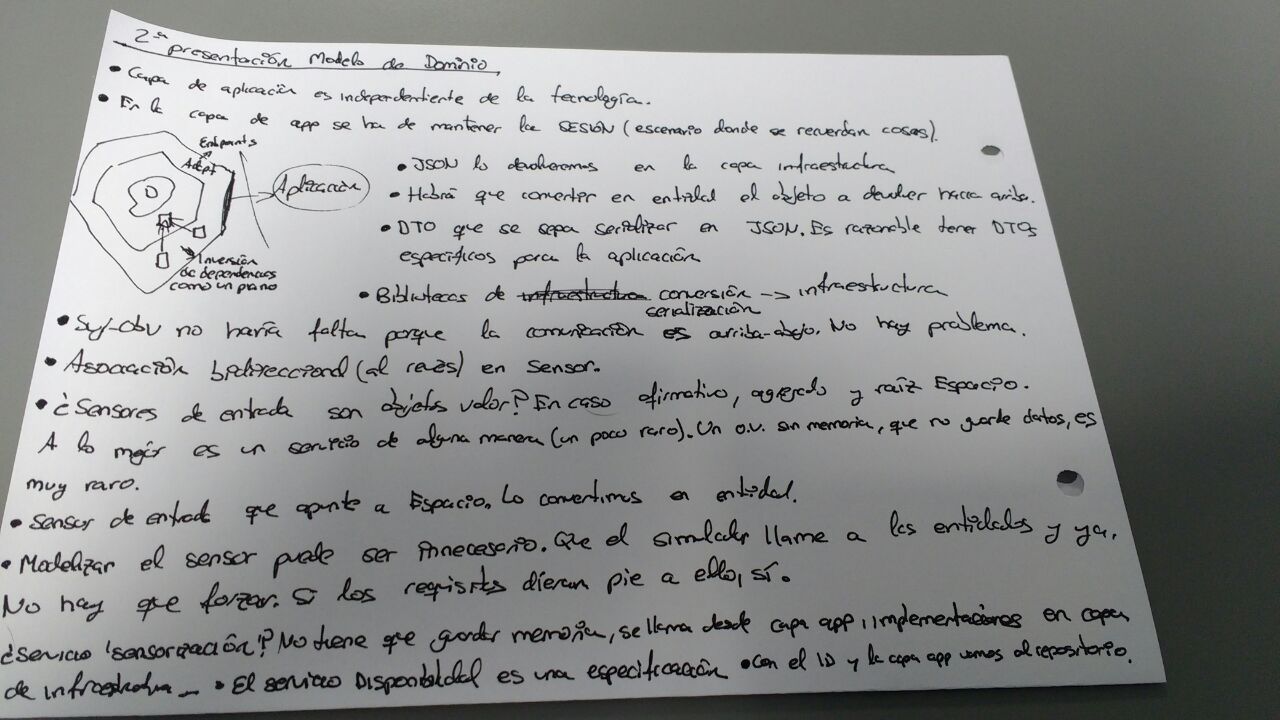 2ª presentación Modelo de Dominio
• Capa de aplicación es independiente de la tecnología.
• En la capa de app se ha de mantener la SESIÓN (escenario donde se recuerdan cosas).
Endpoints
Adapt
Aplicación
D
Inversión
de dependencias
como un piano
• JSON lo devolveremos en la capa infraestructura
• Habrá que convertir en entidad el objeto a devolver hacia arriba.
• DTO que se sepa serializar en JSON. Es razonable tener DTOs
específicos para la aplicación
• Bibliotecas de infraestructura conversión -> infraestructura
serialización
• Suj-obv no haría falta porque la comunicación es arriba-abajo. No hay problema.
• Asociación bidireccional (al revés) en Sensor.
• ¿Sensores de entrada son objetos valor? En caso afirmativo, agregado y raíz Espacio.
A lo mejor es un servicio de alguna manera (un poco raro). Un o.v. sin memoria, que no guarde datos, es
muy raro.
• Sensor de entrada que apunte a Espacio. Lo convertimos en entidad.
• Modelizar el sensor puede ser innecesario. Que el simulador llame a las entidades y ya.
No hay que forzar. Si los requisitos dieran pie a ello, sí.
¿Servicio 'sensorización'? No tiene que guardar memoria, se llama desde capa app, implementaciones en capa
de infraestructura... • El servicio Disponibilidad es una especificación • Con el ID y la capa app vamos al repositorio.